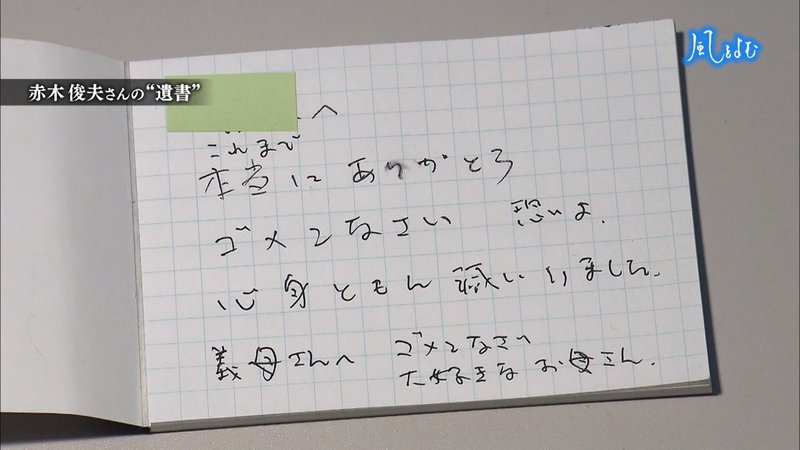 風をよむ
赤木 俊夫さんの“遺書”
へ
これまで
本当に ありがとう
ゴメンなさい 恐いよ、
心身ともに 滅いりました、
義母さんへ ゴメンなさい
大好きな お母さん、